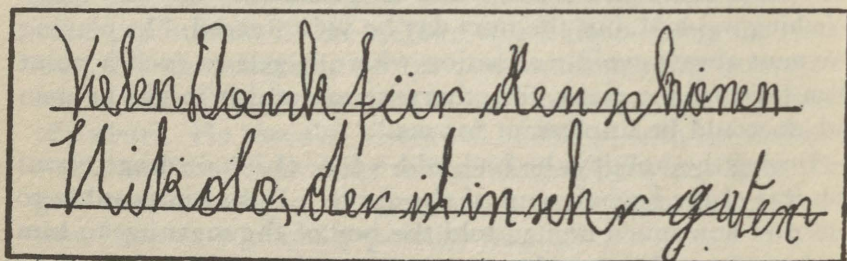 Vielen Dank für den schönen
Nikolo, der ist in sehr guten